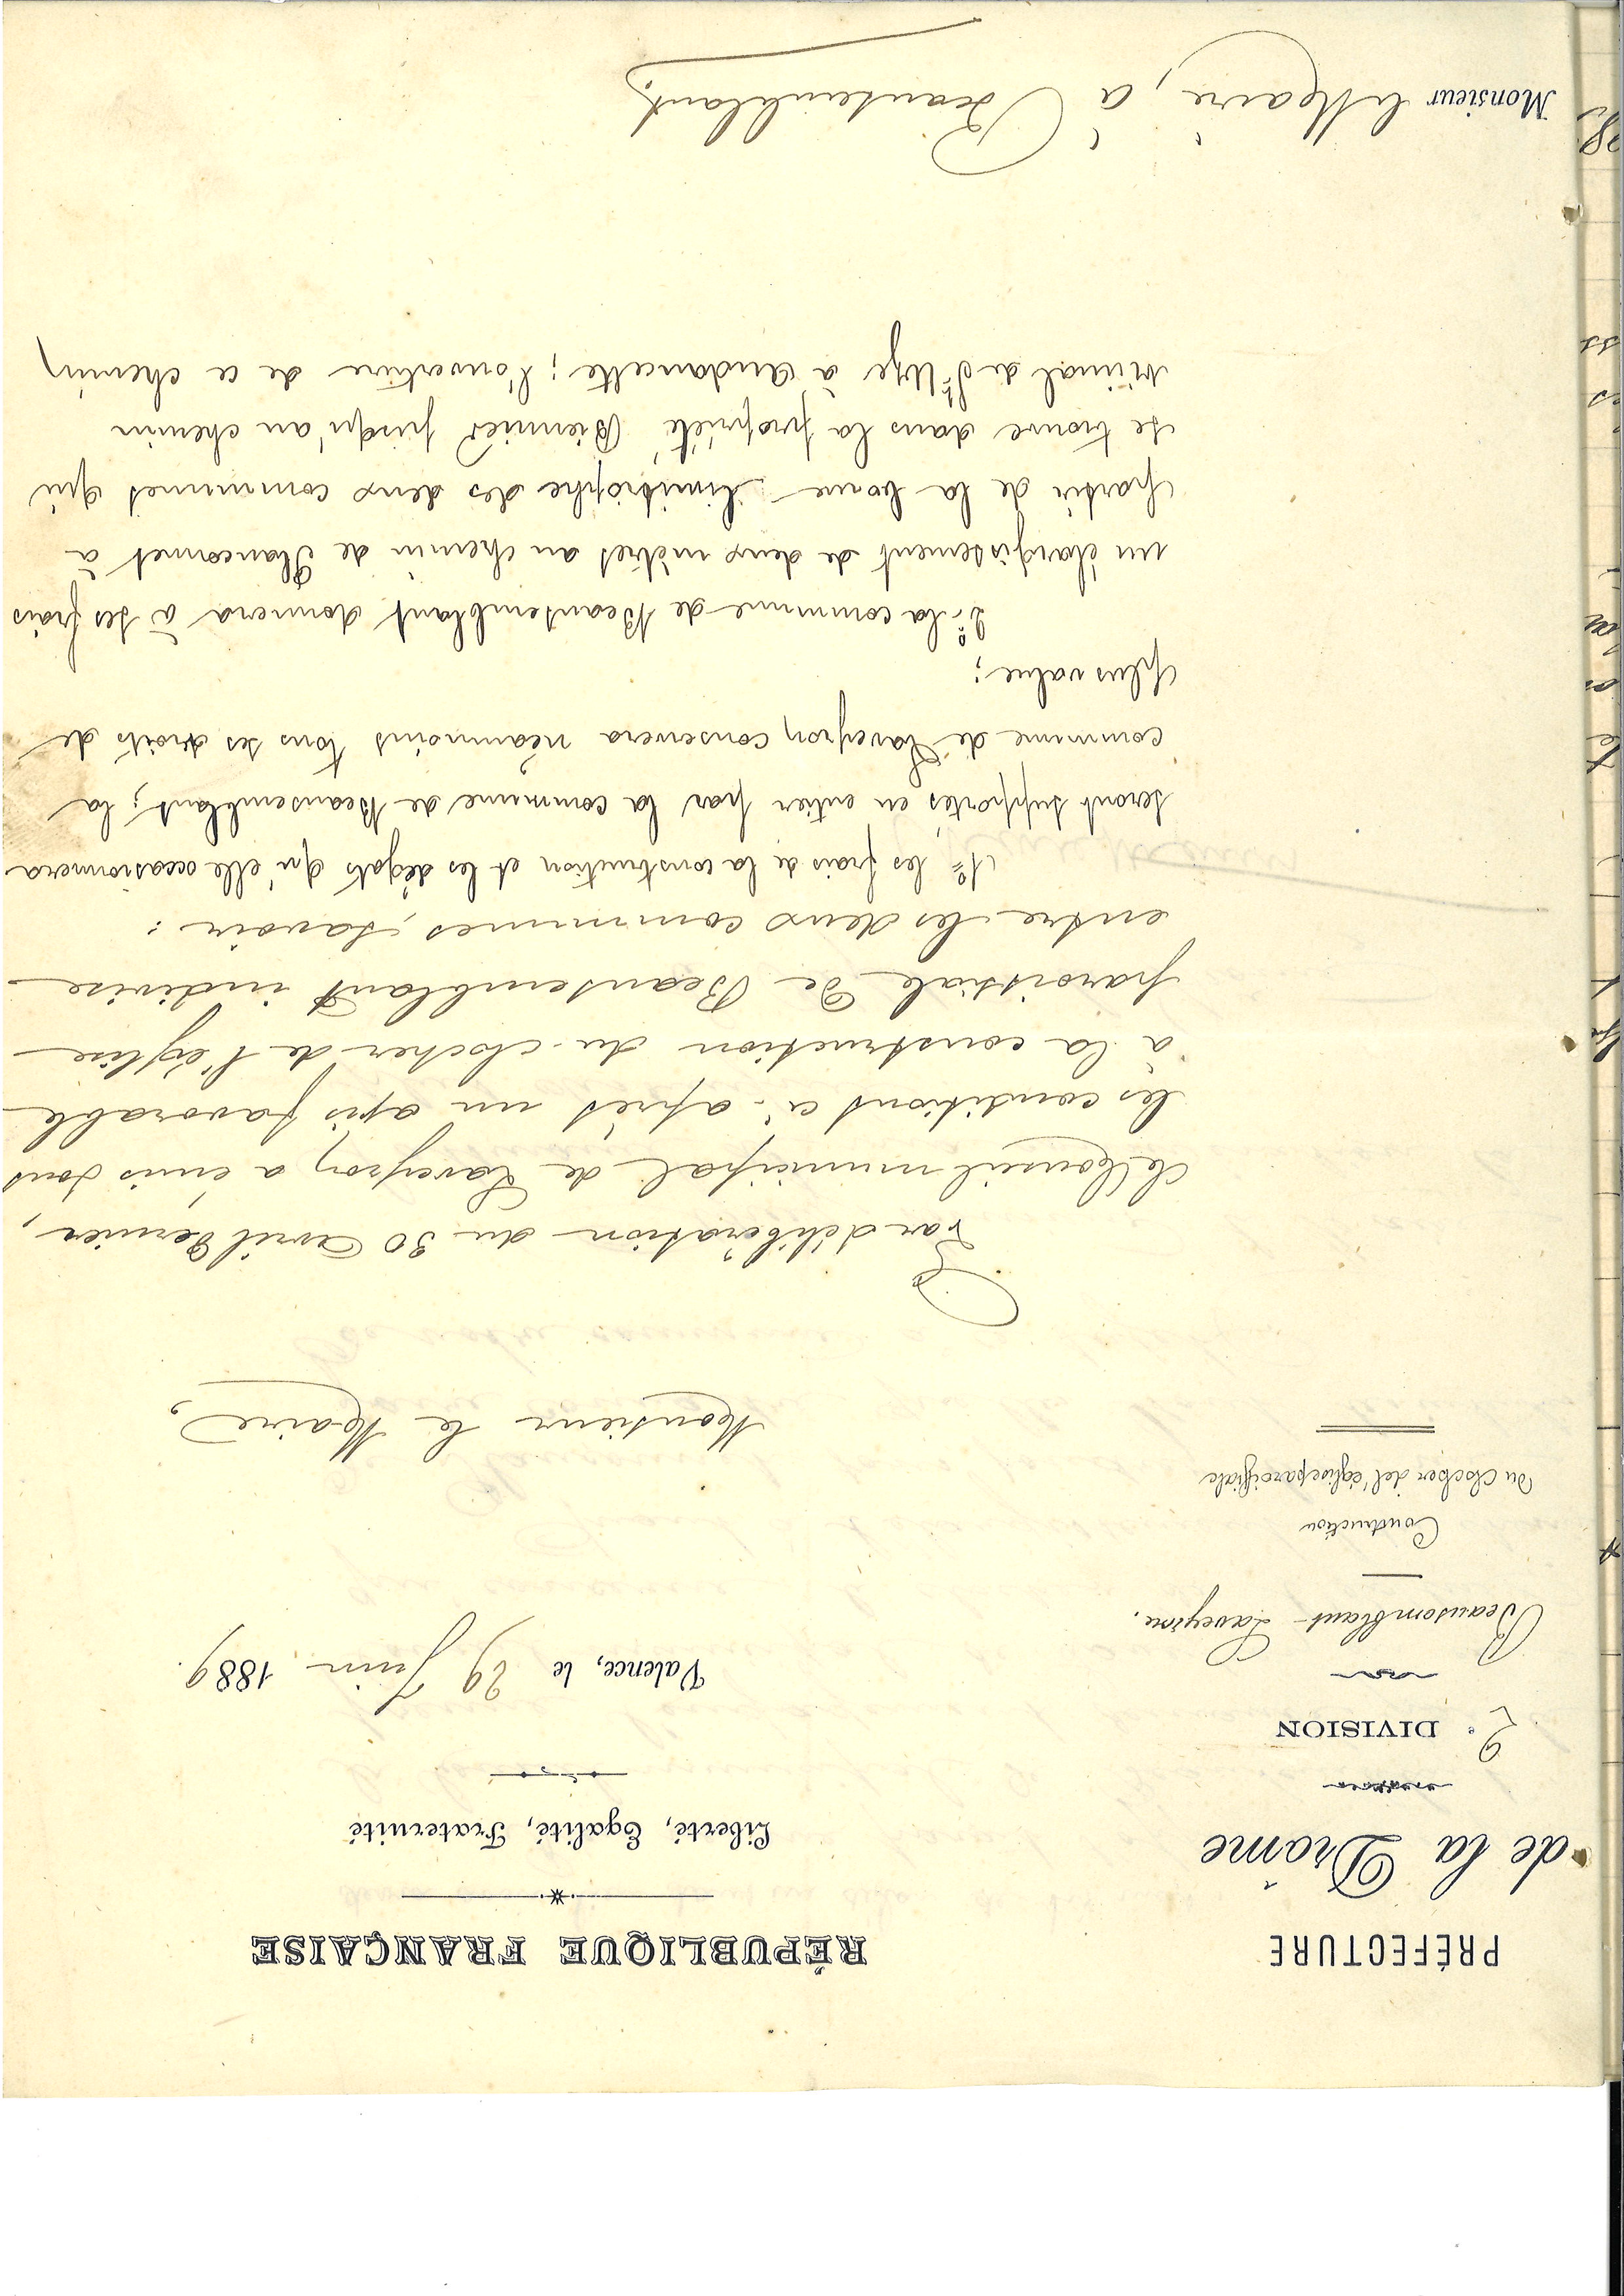 PRÉFECTURE
de la Drôme
2e DIVISION
Beausemblant - Laveyron.
Construction
du clocher de l'église paroissiale
RÉPUBLIQUE FRANÇAISE
Liberté, Egalité, Fraternité
Valence, le 29 Juin 1889.
Monsieur le Maire,
Par délibération du 30 Avril dernier,
le Conseil municipal de Laveyron a émis sous
les conditions ci-après un avis favorable
à la construction du clocher de l'église
paroissiale de Beausemblant indivise
entre les deux communes, savoir :
1º les frais de la construction et les dégats qu'elle occasionnera
seront supportés en entier par la commune de Beausemblant ; la
commune de Laveyron conservera néanmoins tous ses droits de
plus value ;
2º la commune de Beausemblant donnera à ses frais
un élargissement de deux mètres au chemin de à
partir de la borne limitrophe des deux communes qui
se trouve dans la propriété Biennier jusqu'au chemin
vicinal de St Uze à Andancette ; l'ouverture de ce chemin
Monsieur le Maire, à Beausemblant.